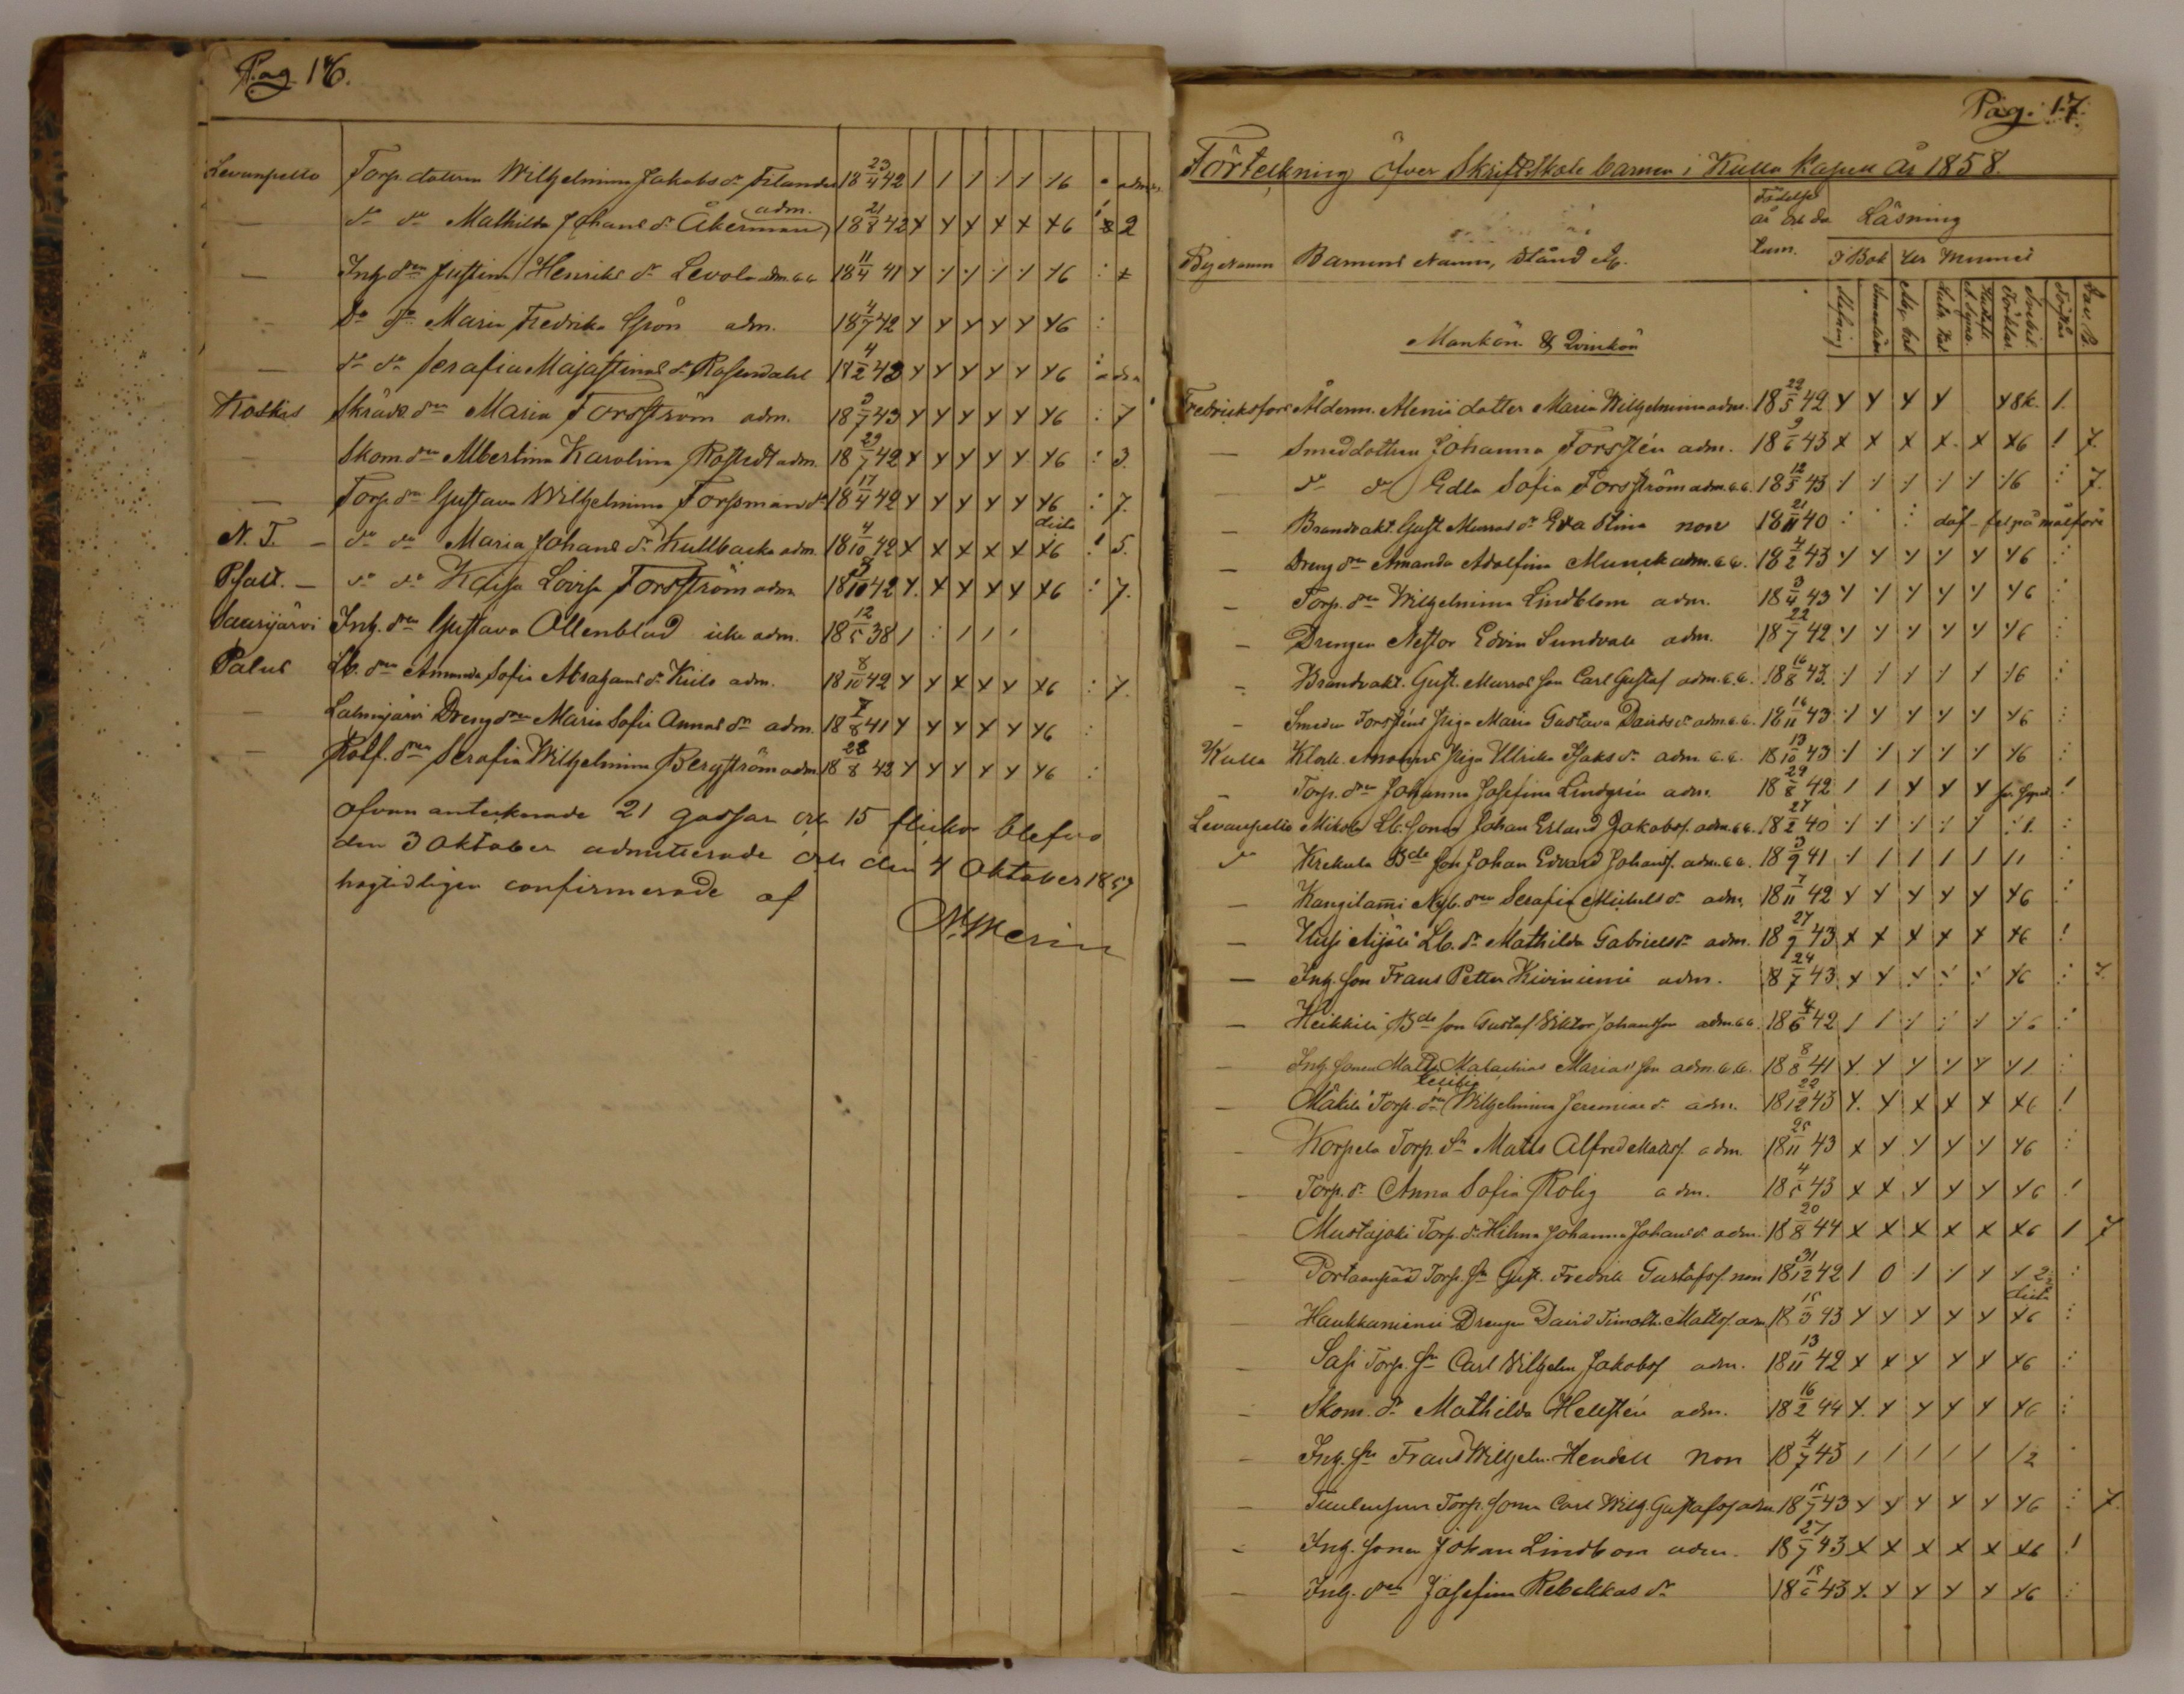 Pag. 16.
Levanpelto Torp. dottern Wilhelmina Jakobs dr Filander 18 23/4 42 / / / / / /6
— dr dr Mathilda Johans dr Åkerman adm. 18 21/8 42 x x x x x x6 2
— Inh. drn Justina Henriks dr Levola adm. 18 11/4 41
— Do dr Maria Fredrika Grön adm. 18 4/7 42 x x x x x x6 :
— dr dr Serafia Majastinas dr Rosendahl 18 4/2 43 x x x x x x6
Koskis Skrädd drn Maria Forsström adm. 18 3/7 43 x x x x x x6 : 7
— Skom. drn Albertina Karolina Rostedt adm. 18 29/7 42 x x x x x x6 : 3.
— Torp. drn Gustava Wilhelmina Forssman 18 17/4 42 x x x x x x6 : 7.
N. T. — dr dr Maria Johans dr Kullbacka adm. 18 4/10 42 x x x x x x6 ! 5.
— dr dr Kajsa Lovisa Forsström adm 18 3/10 42 x x x x x x6 : 7.
Saarijärvi Inh. drn Gustava Allenblad icke adm. 18 12/5 38 / : / / /
Palus Lb. drn Amanda Sofia Abrahams dr Kiila adm. 18 8/10 42 x x x x x x6 : 7.
— Lalmijärvi Dreng drn Maria Sofia Annas dr adm. 18 7/8 41 x x x x x x6 :
— Rolf. drn Serafia Wilhelmina Bergström adm 18 28/8 42 x x x x x x6 :
Ofvan antecknade 21 gossar och 15 flickor blefvo
den 3 Oktober admitterade och den 4 Oktober 1857
högtidligen confirmerade af
Pag. 17.
Förteckning öfver Skriftskole barnen i Kulla Kapell År 1858.
Födelse
år och da
tum.
Läsning
Bynamn Barnens Namn, stånd etc.
i Bok Ur Minnet
Mankön & Qvinkön
Fredriksfors Ålderm. Alenii dotter Maria Wilhelmina adm. 18 22/5 42 x x x x x8k. 1.
— Smeddottern Johanna Forstén adm. 18 9/6 43 x x x x x x6 ! 7.
— dr dr Edla Sofia Forsström adm. 18 12/5 43 / / / / / /6 : 7.
— Brandvakt. Gust. Murras dr Eva Stina non 18 21/11 40 : : döf
— Dreng drn Amanda Adolfina Munck adm. 18 4/2 43 x x x x x x6 :
— Torp. drn Wilhelmina Lindblom adm. 18 3/4 43 x x x x x x6 :
— Drengen Nestor Edvin Sundvall adm. 18 22/7 42 x x x x x x6 :
— Brandvakt. Gust. Murras son Carl Gustaf adm. 18 16/8 43 / / / / / /6 :
— Smeden Forsténs Piga Maria Gustava Davids dr adm. 18 16/11 43 x x x x x x6 :
Kulla Klock. Piga Ulrika Isaks dr adm 18 13/10 43 / / / / / /6 :
— Torp. drn Johanna Josefina Lindgrén adm. 18 29/8 42 / / x x x !
Levanpelto Mikola Lb. sonen Johan Erland Jakobss. adm. 18 27/2 40
dr Krekula Bde son Johan Edvard Johanss. adm. 18 3/9 41
— Kangilami Nyb. drn Serafia Michels dr adm. 18 7/11 42 x x x x x x6 :
— Lb. dr Mathilda Gabriels dr adm. 18 27/9 43 x x x x x x6 !
— Inh. son Frans Petter Kiviniemi adm. 18 24/7 43 x x x x x x6 : 7.
— Heikkilä Bde son Gustaf Viktor Johansson adm. 18 4/6 42 / / / / / /6 :
— Inh. sonen Matts Malachias Marias son adm. 18 8/8 41 x x x x x x1 :
— Mäkilä Torp. drn Cecilia Wilhelmina Jeremias dr adm. 18 22/12 43 x x x x x x6 !
— Korpela Torp. Sn Matts Alfred Mattss. adm. 18 25/11 43 x x x x x x6 :
— Torp. dr Anna Sofia Rolig adm. 18 4/5 43 x x x x x x6 !
— Mustajoki Torp. dr Hilma Johanna Johans dr adm. 18 20/8 44 x x x x x x6 1 7
— Portaanpää Torp. Sn Gust. Fredrik Gustafss. non 18 31/12 42 1 0 / / x x2 :
— Haukkaniemi Drengen David Timoth. Mattss. adm 18 15/3 43 x x x x x x6 :
— Sasi Torp. Sn Carl Wilhelm Jakobss adm. 18 13/11 42 x x x x x x6 :
— Skom. dr Mathilda Hellstén adm. 18 16/2 44 x x x x x x6 :
— Inh. Sn Frans Wilhelm Hendell non 18 4/7 43 / / / / / /2
— Torp. sonen Carl Wilh. Gustafss adm 18 15/7 43 x x x x x x6 : 7.
— Inh. sonen Johan Lindbom adm. 18 27/7 43 x x x x x x6 !
— Inh. drn Josefina Rebekkas dr 18 15/6 43 x x x x x x6 :